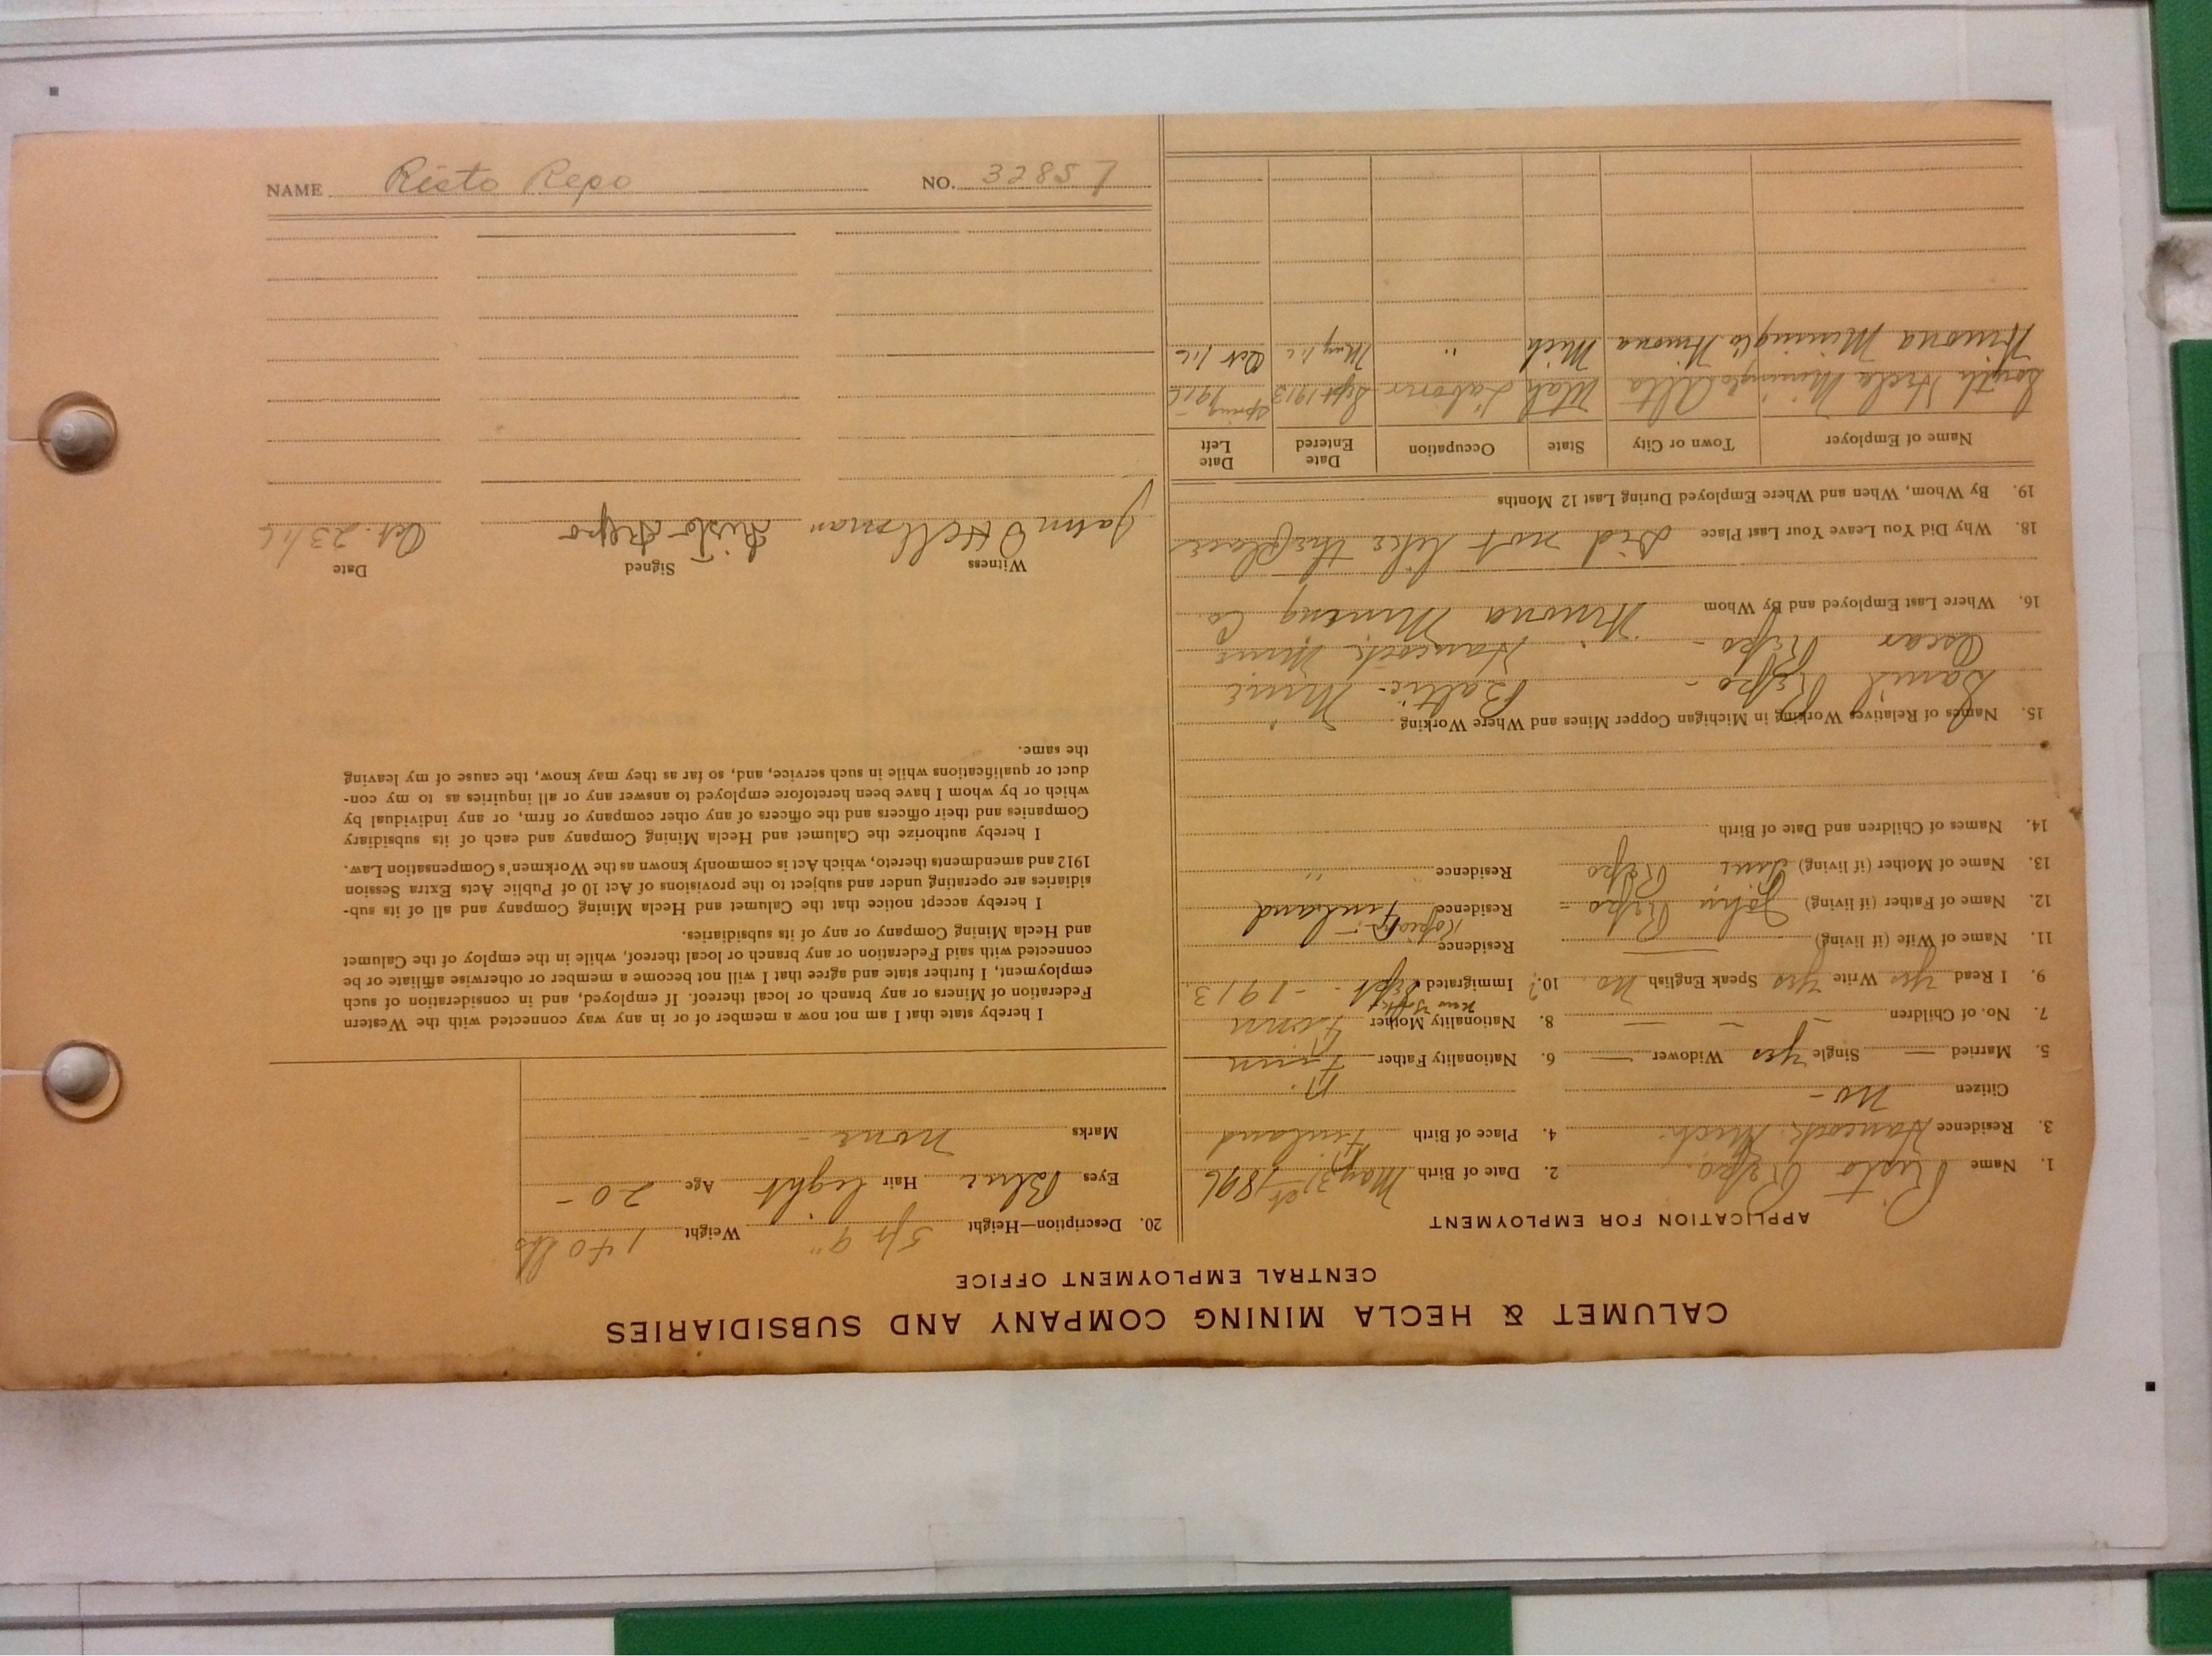 NAME Risto Repo NO. 32857
CALUMET & HECLA MINING COMPANY AND SUBSIDIARIES
CENTRAL EMPLOYMENT OFFICE
APPLICATION FOR EMPLOYMENT
1. Name Risto Repo. 2. Date of Birth May 31st 1896
3. Residence Hancock Mich. 4. Place of Birth Finland
Citizen no -
5. Married — Single yes Widower — 6. Nationality Father Finn
7. No. of Children — — — 8. Nationality Mother Finn
New York
9. I Read yes Write yes Speak English no 10. Immigrated Sept - 1913
11. Name of Wife (if living) — Residence
12. Name of Father (if living) John Repo = Residence Finland
13. Name of Mother (if living) Repo Residence " "
14. Names of Children and Date of Birth
15. Names of Relatives Working in Michigan Copper Mines and Where Working
Repo - Baltic - Mine
Oscar Repo - Hancock Mine
16. Where Last Employed and By Whom Winona Mining Co.
18. Why Did You Leave Your Last Place Did not like the place
19. By Whom, When and Where Employed During Last 12 Months
Name of Employer Town or City State Occupation Date Entered Date Left
South Hecla Mining Co Alta Utah Labour Sept 1913 Spring 1916
Winona Mining Co Winona Mich " May /16 Oct /16
20. Description—Height 5 ft 9" Weight 140 lbs
Eyes Blue Hair light Age 20 -
Marks none -
I hereby state that I am not now a member of or in any way connected with the Western
Federation of Miners or any branch or local thereof. If employed, and in consideration of such
employment, I further state and agree that I will not become a member or otherwise affiliate or be
connected with said Federation or any branch or local thereof, while in the employ of the Calumet
and Hecla Mining Company or any of its subsidiaries.
I hereby accept notice that the Calumet and Hecla Mining Company and all of its sub-
sidiaries are operating under and subject to the provisions of Act 10 of Public Acts Extra Session
1912 and amendments thereto, which Act is commonly known as the Workmen's Compensation Law.
I hereby authorize the Calumet and Hecla Mining Company and each of its subsidiary
Companies and their officers and the officers of any other company or firm, or any individual by
which or by whom I have been heretofore employed to answer any or all inquiries as to my con-
duct or qualifications while in such service, and, so far as they may know, the cause of my leaving
the same.
Witness Signed Date
John O Hellman Risto Repo Oct. 23/16